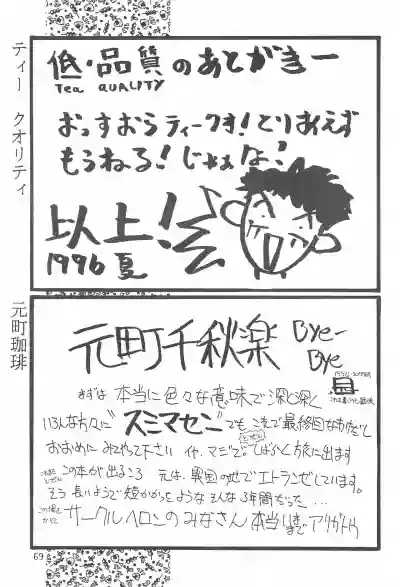 ティー クオリティ
低・品質のあとがきー
Tea QUALITY
おっすおらティークオ!とりあえず
もうねる!じゃぁな?
以上!
1996 夏
元町珈琲
元町千秋楽 Bye-
Bye
まずは本当に色々な意味で深く深く
いろんな方々に"スミマセン"でもこれで最終回なわけだし
おおめに みてやって下さい イヤ、マジで。しばらく旅に出ます
この本が出るころ 元は、異国の地でエトランゼしています。
そう 長いようで短かかったような そんな3年間だった…
サークルヘロンのみなさん 本当に今まで アリガトウ
69